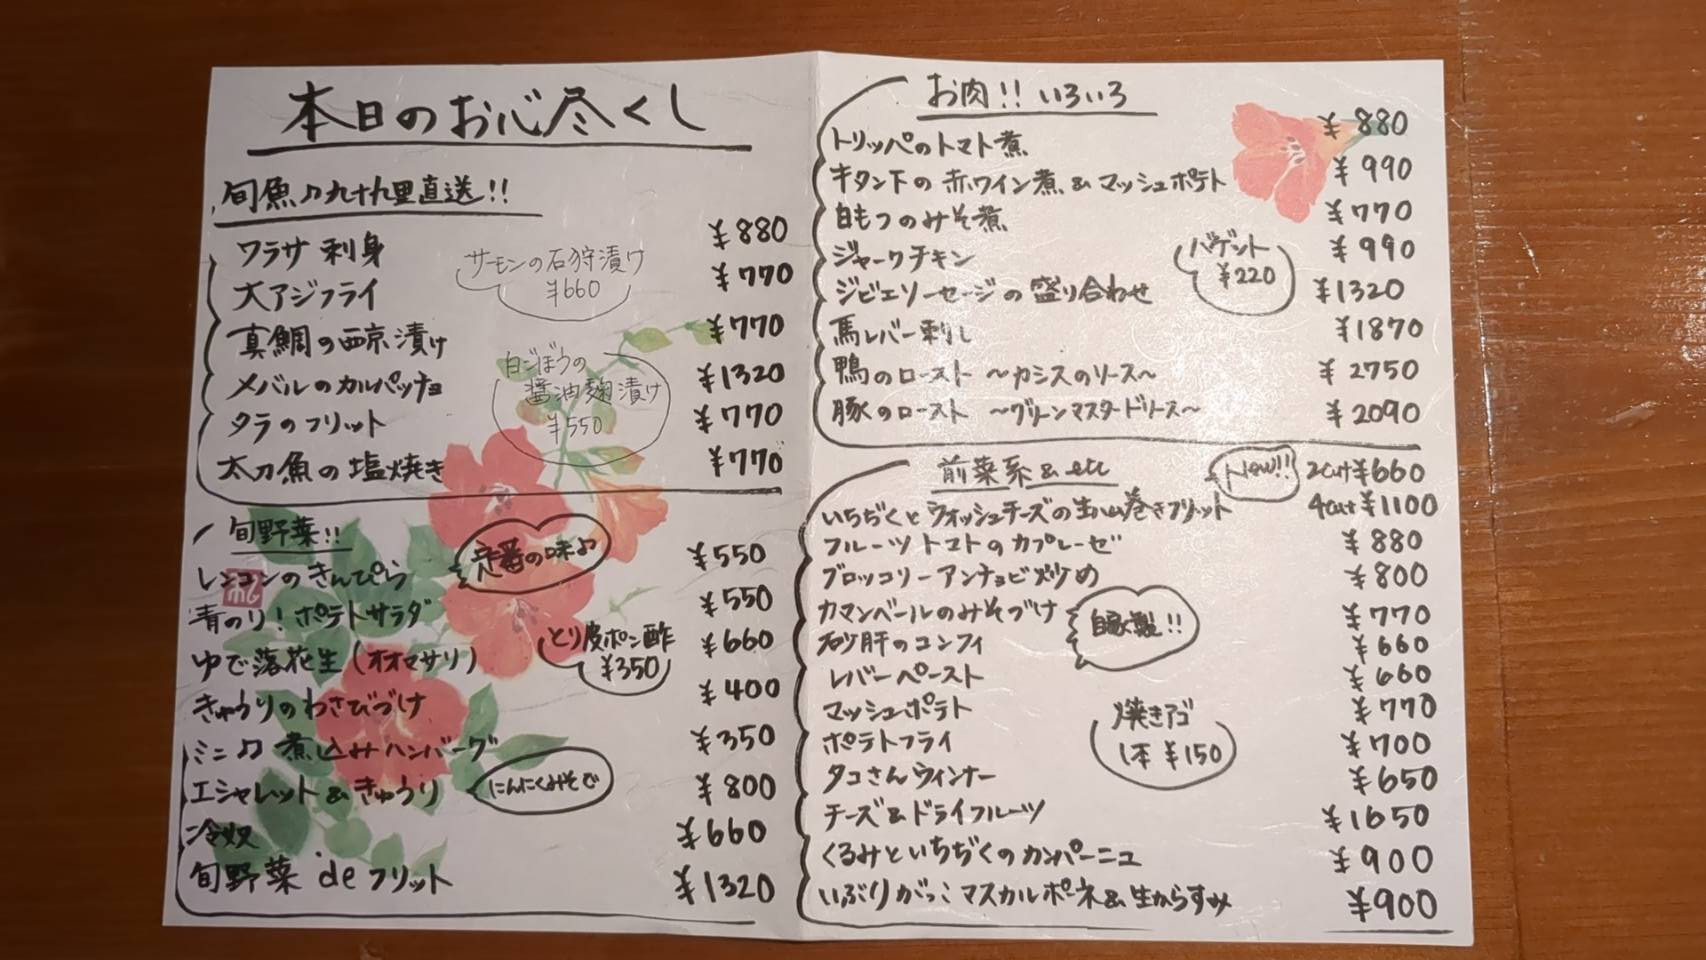 本日のお心尽くし
旬魚♫九十九里直送!!
ワラサ刺身 ¥880
大アジフライ ¥770
真鯛の西京漬け ¥770
メバルのカルパッチョ ¥1320
タラのフリット ¥770
太刀魚の塩焼き ¥770
サーモンの石狩漬け
¥660
白ごぼうの
醤油麹漬け
¥550
旬野菜!!
定番の味♫
レンコンのきんぴら ¥550
青のり!ポテトサラダ ¥550
ゆで落花生(オオマサリ) ¥660
きゅうりのわさびづけ ¥400
ミニ♫煮込みハンバーグ ¥350
エシャレット&きゅうり ¥800
冷奴 ¥660
旬野菜deフリット ¥1320
とり皮ポン酢
¥350
にんにくみそで
お肉!!いろいろ
トリッパのトマト煮 ¥880
牛タン下の赤ワイン煮&マッシュポテト ¥990
白もつのみそ煮 ¥770
ジャークチキン ¥990
ジビエソーセージの盛り合わせ ¥1320
馬レバー刺し ¥1870
鴨のロースト ～カシスのソース～ ¥2750
豚のロースト ～グリーンマスタードソース～ ¥2090
バゲット
¥220
前菜系&etc
New!!
2cut¥660
いちぢくとウォッシュチーズの生ハム巻きフリット 4cut¥1100
フルーツトマトのカプレーゼ ¥880
ブロッコリーアンチョビ炒め ¥800
カマンベールのみそづけ ¥770
砂肝のコンフィ ¥660
レバーペースト ¥660
マッシュポテト ¥770
ポテトフライ ¥700
タコさんウィンナー ¥650
チーズ&ドライフルーツ ¥1650
くるみといちぢくのカンパーニュ ¥900
いぶりがっこマスカルポーネ&生からすみ ¥900
自家製!!
焼きアゴ
1本 ¥150